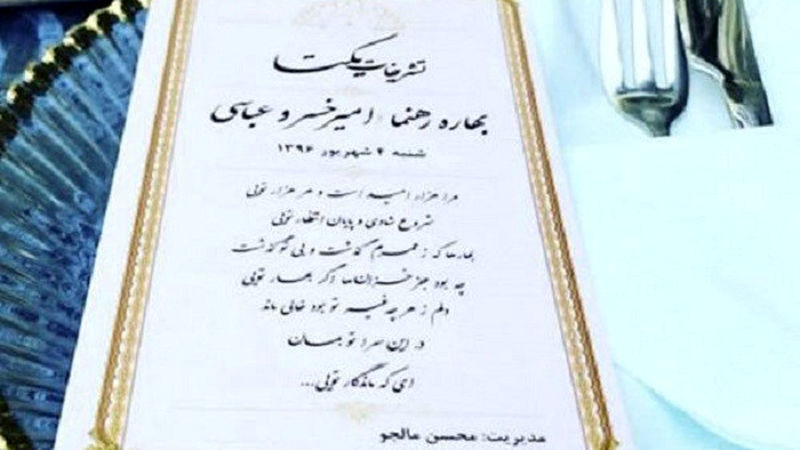 تشریفات یکتا
بهاره رهنما امیرخسرو عباسی
شنبه ۴ شهریور ۱۳۹۶
مرا هزار امید است و هر هزار تویی
شروع شادی و پایان انتظار تویی
بهارها که ز عمرم گذشت و بی تو گذشت
چه بود جز خزان‌ها اگر بهار تویی
دلم ز هر چه به غیر تو بود خالی ماند
در این سرا تو بمان
ای که ماندگار تویی...
مدیریت: محسن مالجو